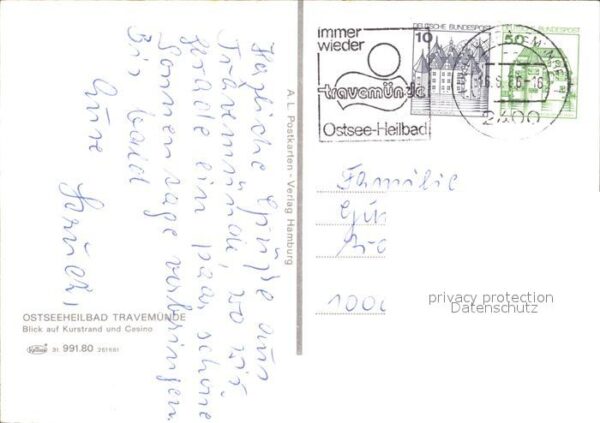 Herzliche Grüße aus
Travemünde, wo wir
gerade ein paar schöne
Sonnentage verbringen.
Bis bald
Eure
A L Postkarten - Verlag Hamburg
OSTSEEHEILBAD TRAVEMÜNDE
Blick auf Kurstrand und Casino
31. 991.80 261681
immer
wieder
travemünde
Ostsee-Heilbad
DEUTSCHE BUNDESPOST
10
DEUTSCHE BUNDESPOST
50
2400
Familie
privacy protection
Datenschutz